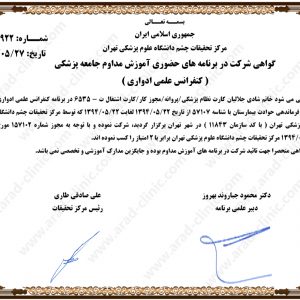 بسمه تعالی
جمهوری اسلامی ایران
مرکز تحقیقات چشم دانشگاه علوم پزشکی تهران
شماره: ۹۲۲
تاریخ: ۰۵/۲۷
گواهی شرکت در برنامه های حضوری آموزش مداوم جامعه پزشکی
( کنفرانس علمی ادواری )
می شود خانم شادی جلالیان کارت نظام پزشکی /پروانه/مجوز کار/کارت اشتغال ت - ۶۵۳۵ در برنامه کنفرانس علمی ادواری
فرماندهی حوادث بیمارستان با شناسه ۵۷۱۰۷ از تاریخ ۱۳۹۴/۰۵/۲۲ لغایت ۱۳۹۴/۰۵/۲۲ که توسط مرکز تحقیقات چشم دانشگاه
پزشکی تهران ( با کد سازمان ۱۱۸۴۳ ) در شهر تهران برگزار گردید، شرکت نموده و با توجه به مجوز شماره ۱۵۷۱۰۲ مورخ
۱۳۹۴ مرکز تحقیقات چشم دانشگاه علوم پزشکی تهران برابر با ۲ امتیاز را کسب نموده اند.
گواهی منحصرا جهت تائید شرکت در برنامه های آموزش مداوم بوده و جایگزین مدارک آموزشی و تخصصی نمی باشد.
دکتر محمود جباروند بهروز
دبیر علمی برنامه
علی صادقی طاری
رئیس مرکز تحقیقات